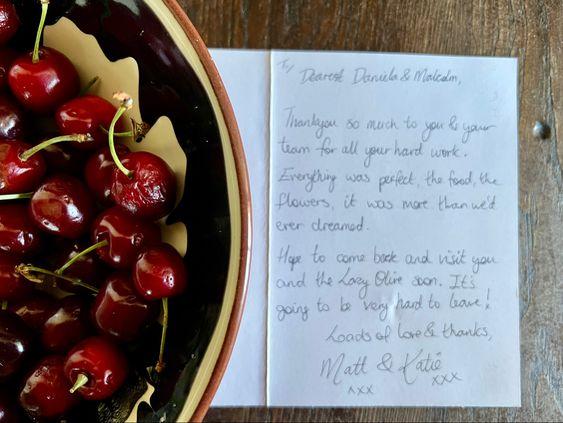 To/ Dearest Daniela & Malcolm,
Thankyou so much to you & your
team for all your hard work.
Everything was perfect, the food, the
flowers, it was more than we'd
ever dreamed.
Hope to come back and visit you
and the Lazy Olive soon. It's
going to be very hard to leave!
Loads of love & thanks,
Matt & Katie
xxx xxx